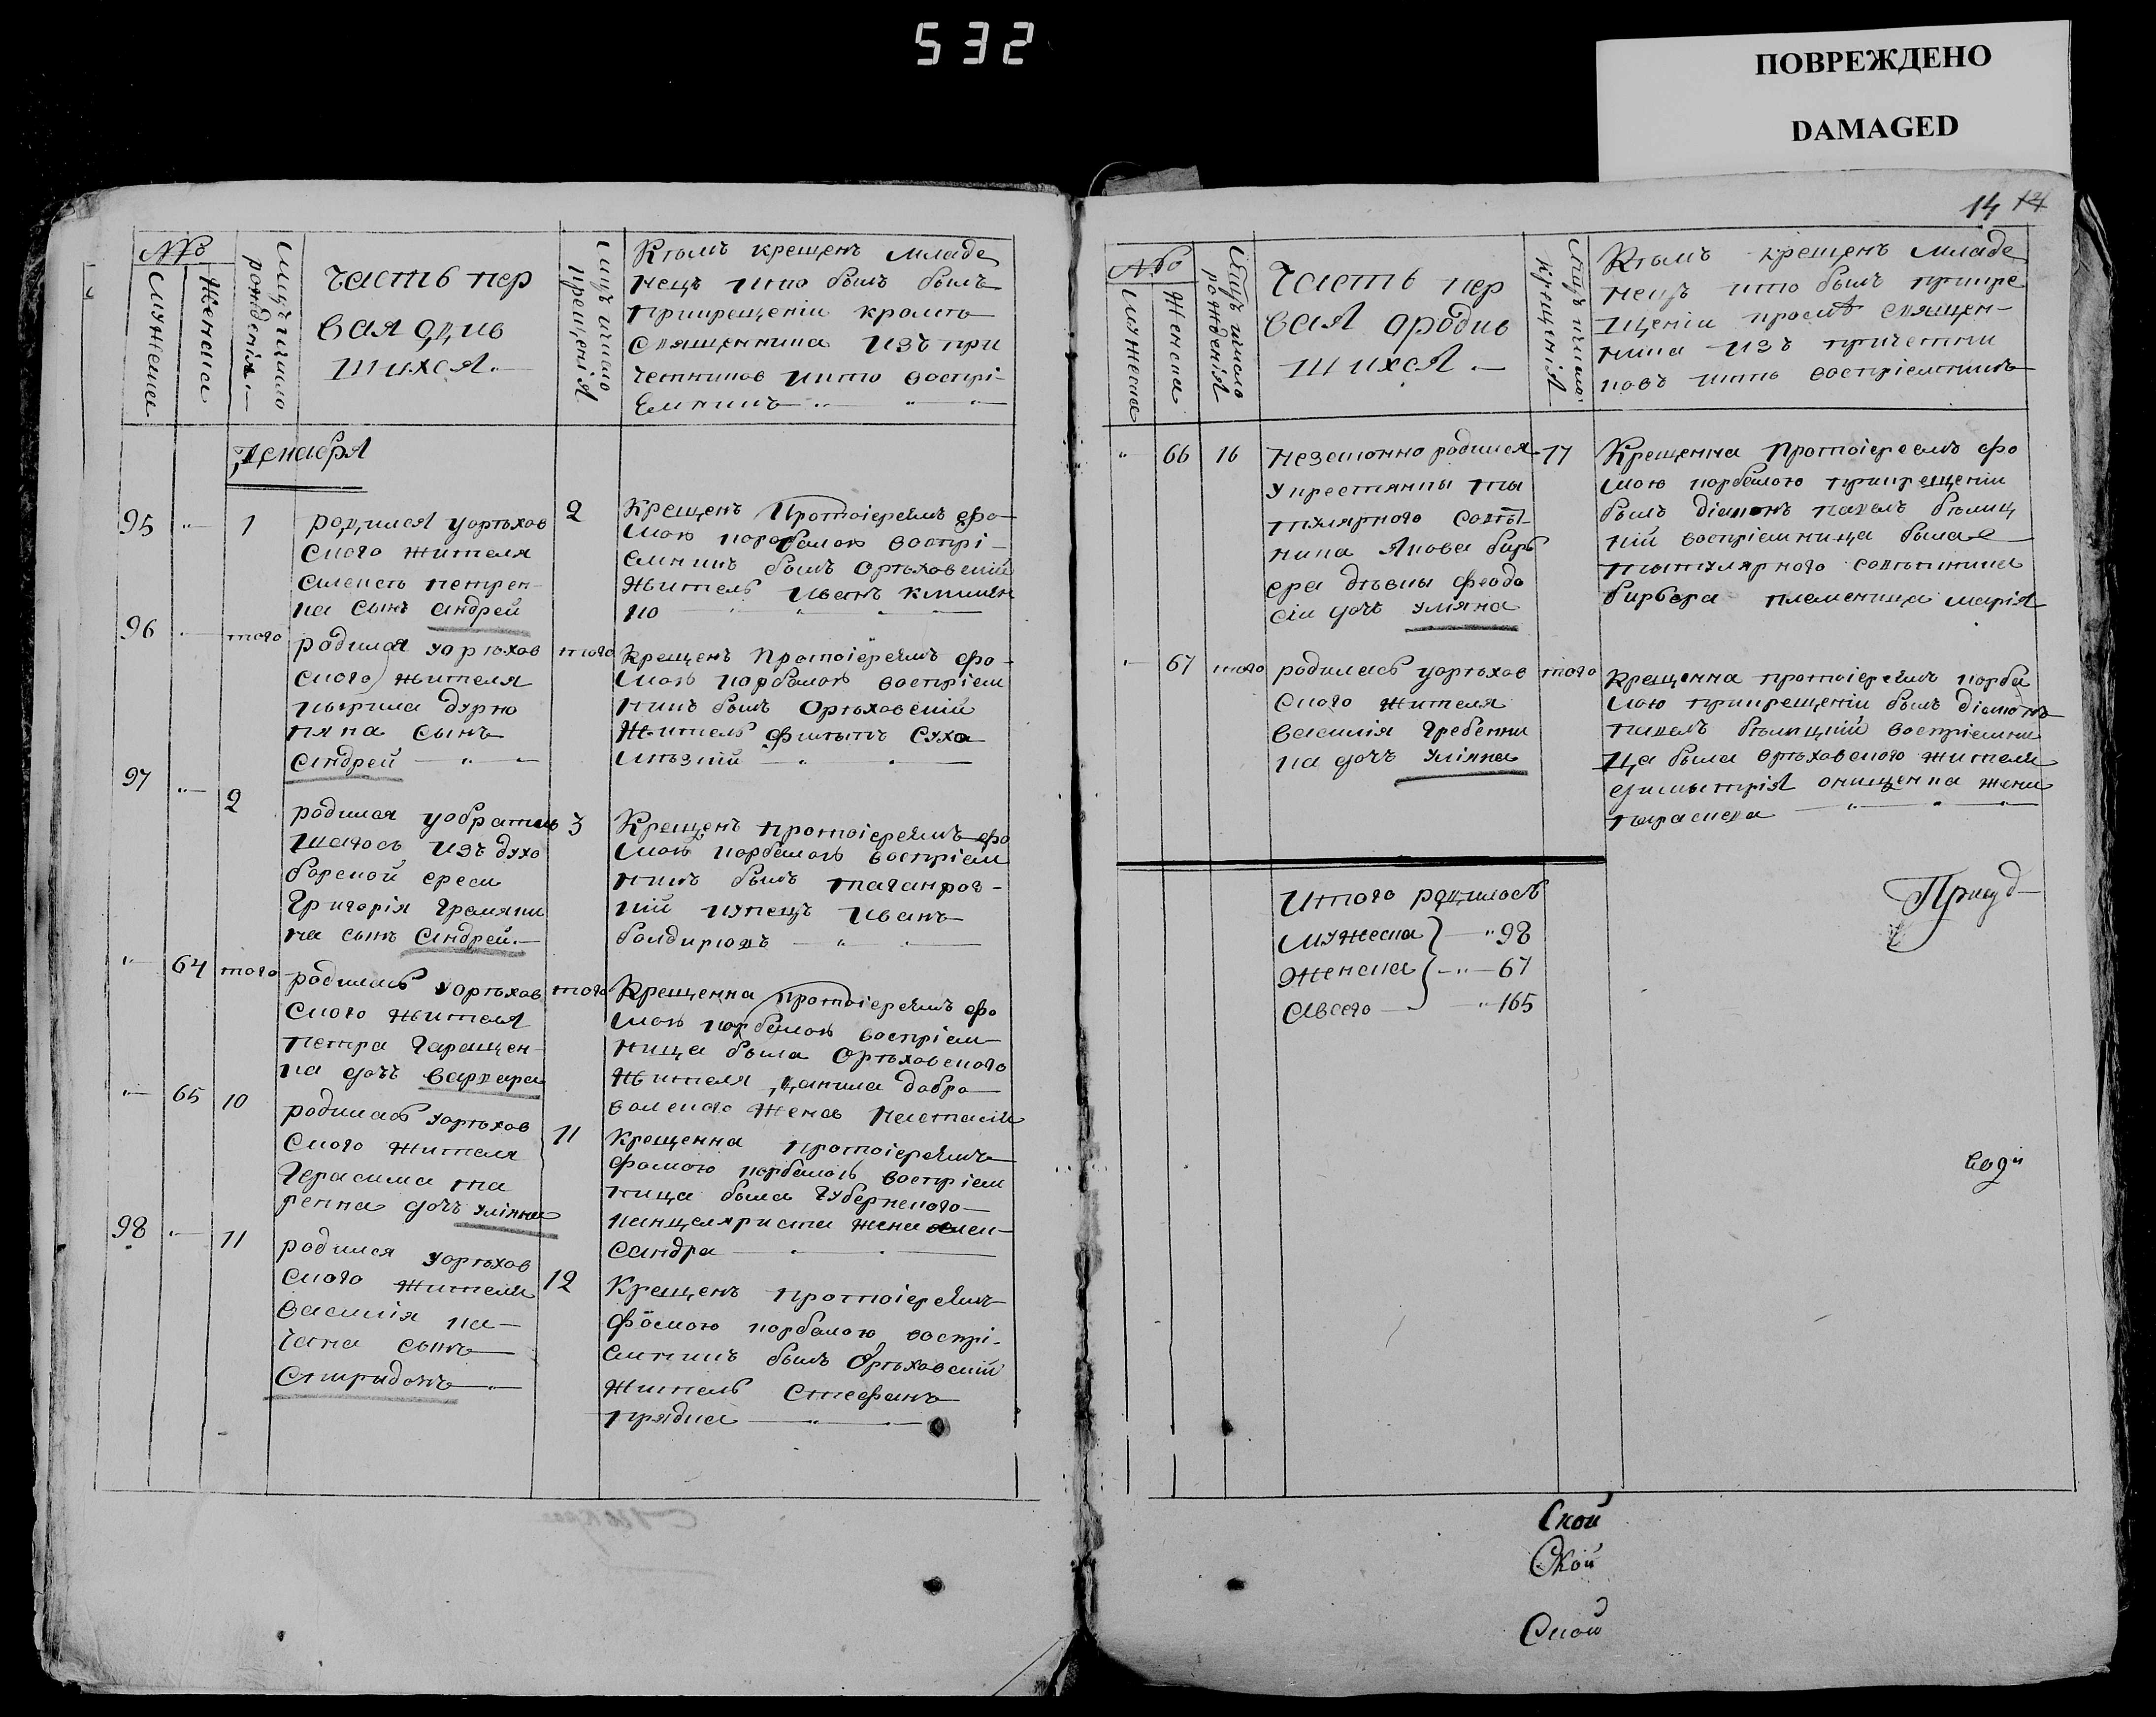 532
ПОВРЕЖДЕНО
DAMAGED
№ъ
Мужеска
Женска
Мцъ ичисло
рожденія
часть пер
вая о родив
шихся
Мцъ ичисло
крещенія
Кѣмъ крещенъ младе
нецъ кто былъ былъ
прикрещеніи кромѣ
священника изъ при
четниковъ икто воспрі
емникъ
Декабря
95 " 1
родился уорѣхов
скаго жителя
петрен
ка сынъ андрей
2
Крещенъ Протоіереемъ фо
мою корбѣлою воспрі
емникъ былъ орѣховскій
житель иванъ
ко
96 " того
родился уорѣхов
скаго жителя
кирила дурно
пяна сынъ
андрей
того
крещенъ Протоіереемъ фо
мою корбелою воспріем
никъ былъ орѣховскій
житель филипъ суха
97 " 2
родился уобратив
шагось изъ духо
борской ереси
Григорія Гремяки
на сынъ андрей
3
Крещенъ протоіереемъ фо
мою корбелою воспріем
никъ былъ таганрог
кій купецъ иванъ
болдиревъ
" 64 того
родилась уорѣхов
скаго жителя
петра Гаращен
ка дочь варвара
того
Крещенна протоіереемъ фо
мою корбелою воспріем
ница была Орѣховскаго
жителя данила добро
вольскаго жена настасія
" 65 10
родилась уорѣхов
скаго жителя
Герасима та
ренка дочь уліяна
11
Крещенна протоіереемъ
фомою корбелою воспріем
ница была Губернского
канцеляриста жена алек
сандра
98 " 11
родился уорѣхов
скаго жителя
василія ка
чана сынъ
Спиридонъ
12
Крещенъ протоіереемъ
фомою корбелою воспрі
емникъ былъ Орѣховскій
житель Стефанъ
прядка
14
№ъ
Мужеска
Женска
Мцъ ичисло
рожденія
Часть пер
вая ородив
шихся
Мцъ ичисло
крещенія
Кѣмъ крещенъ младе
нецъ кто былъ прикре
щеніи кромѣ священ
ника изъ причетни
ковъ икто воспріемникъ
" 66 16
незаконно родился
укрестянки ти
тулярного совѣт
ника якова бирь
ера дѣвки феодо
сіи дочь уліяна
17
Крещенна Протоіереемъ фо
мою корбелою прикрещеніи
былъ діаконъ павелъ бѣлиц
кій воспріемница была
титулярного совѣтника
бирьера племеница марія
" 67 того
родилась уорѣхов
скаго жителя
василія Гребенни
ка дочь уліяна
того
Крещенна протоіереемъ корбе
лою прикрещеніи былъ діаконъ
павелъ бѣлицкій воспріемни
ца была орѣховскаго жителя
димытрія онищенка жена
параскева
Итого родилось
Мужеска " 98
Женска " 67
Авсего " 165
Ской
Ской
Ской